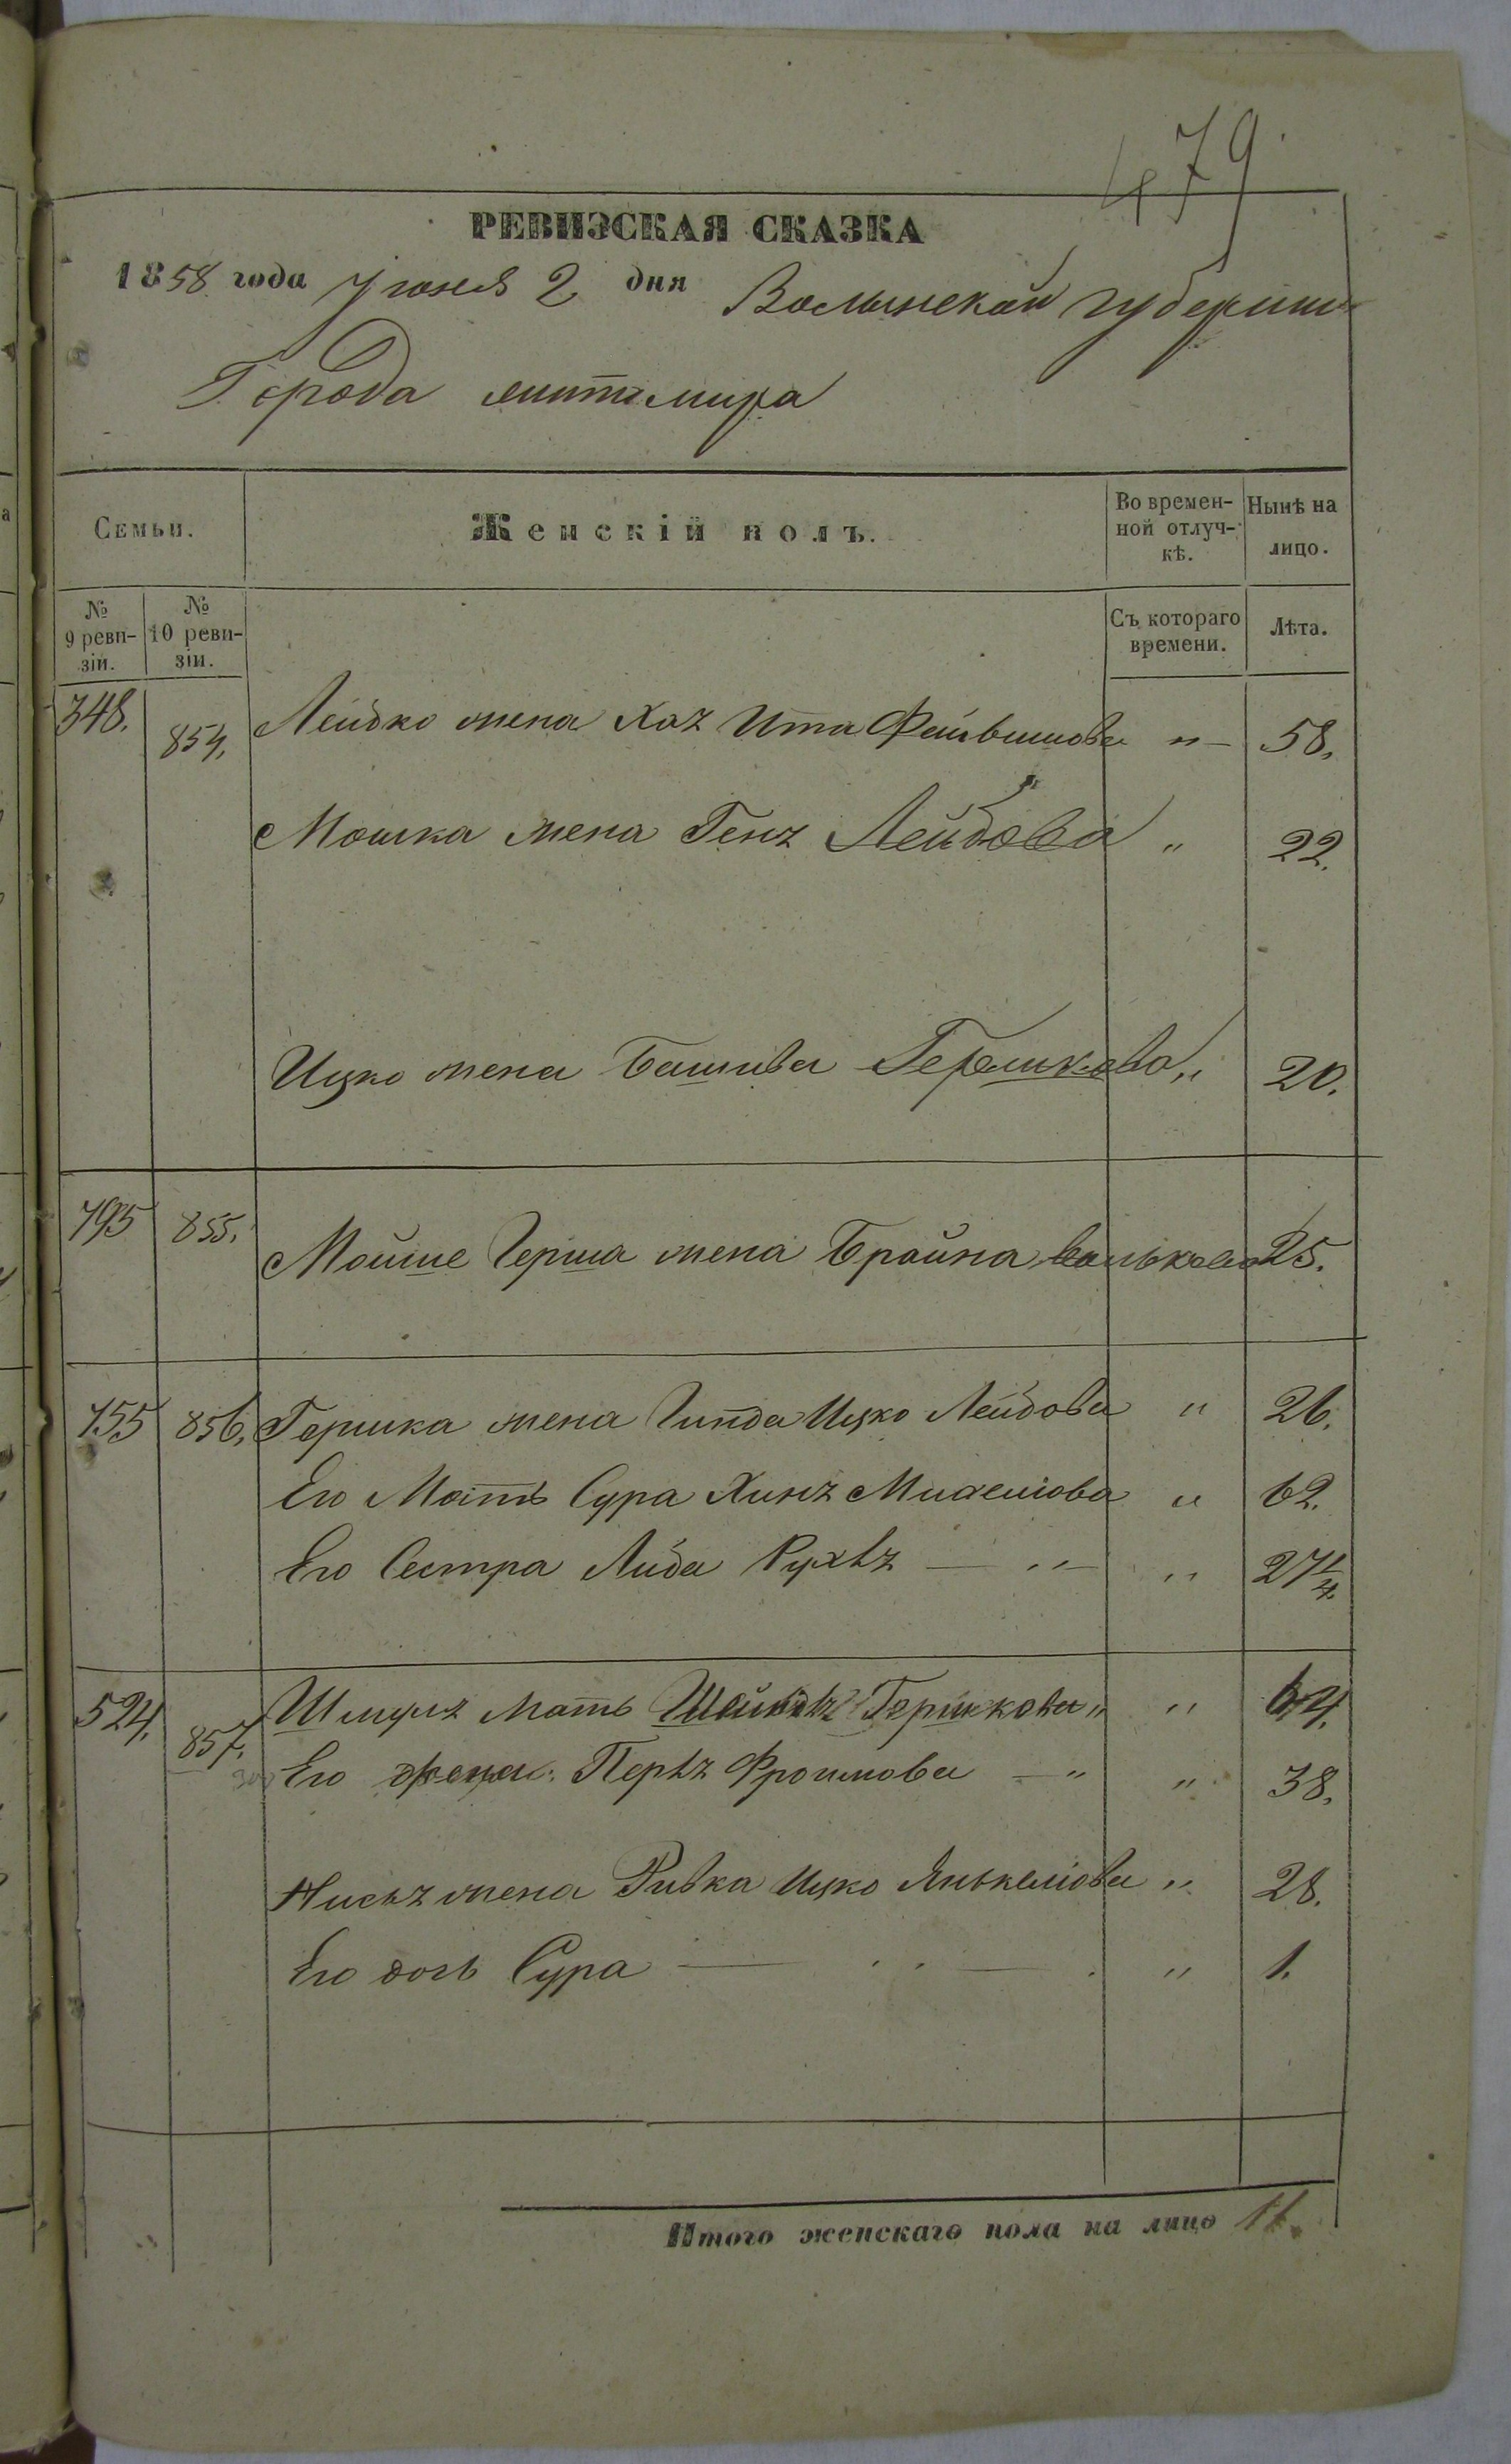 479.
РЕВИЗСКАЯ СКАЗКА
1858 года Июня 2 дня Волынской губернии
Города Житомира
Семьи. Женскій полъ. Во времен- Нынѣ на
ной отлуч- лицо.
кѣ.
№ № Съ котораго Лѣта.
9 реви- 10 реви- времени.
зіи. зіи.
348. 854. Лейбко жена Хая Ита Файвишова „ — 58.
Мошка жена Геня Лейбова „ 22.
Ицко жена Башива Гершкова „ 20.
795 855. Мойше Герша жена Брайна Волькова 25.
755 856. Гершка жена Гинда Ицко Лейбова „ 26.
Его Мать Сура Хиня Михелiова „ 62.
Его Сестра Либа Рухля — „ — „ 27 1/4.
524. 857. Шмуля Мать Гершкова „ „ 64.
Его жена Перля Фроимова — „ „ 38.
жена Ривка Ицко Янькелiова „ 28.
Его дочь Сура — „ — „ 1.
Итого женскаго пола на лицо 11.